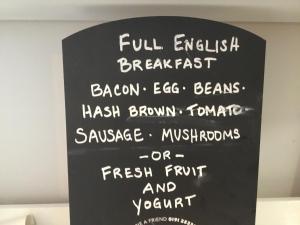 FULL ENGLISH
BREAKFAST
BACON · EGG · BEANS ·
HASH BROWN · TOMATO
SAUSAGE · MUSHROOMS
- OR -
FRESH FRUIT
AND
YOGURT
A FRIEND